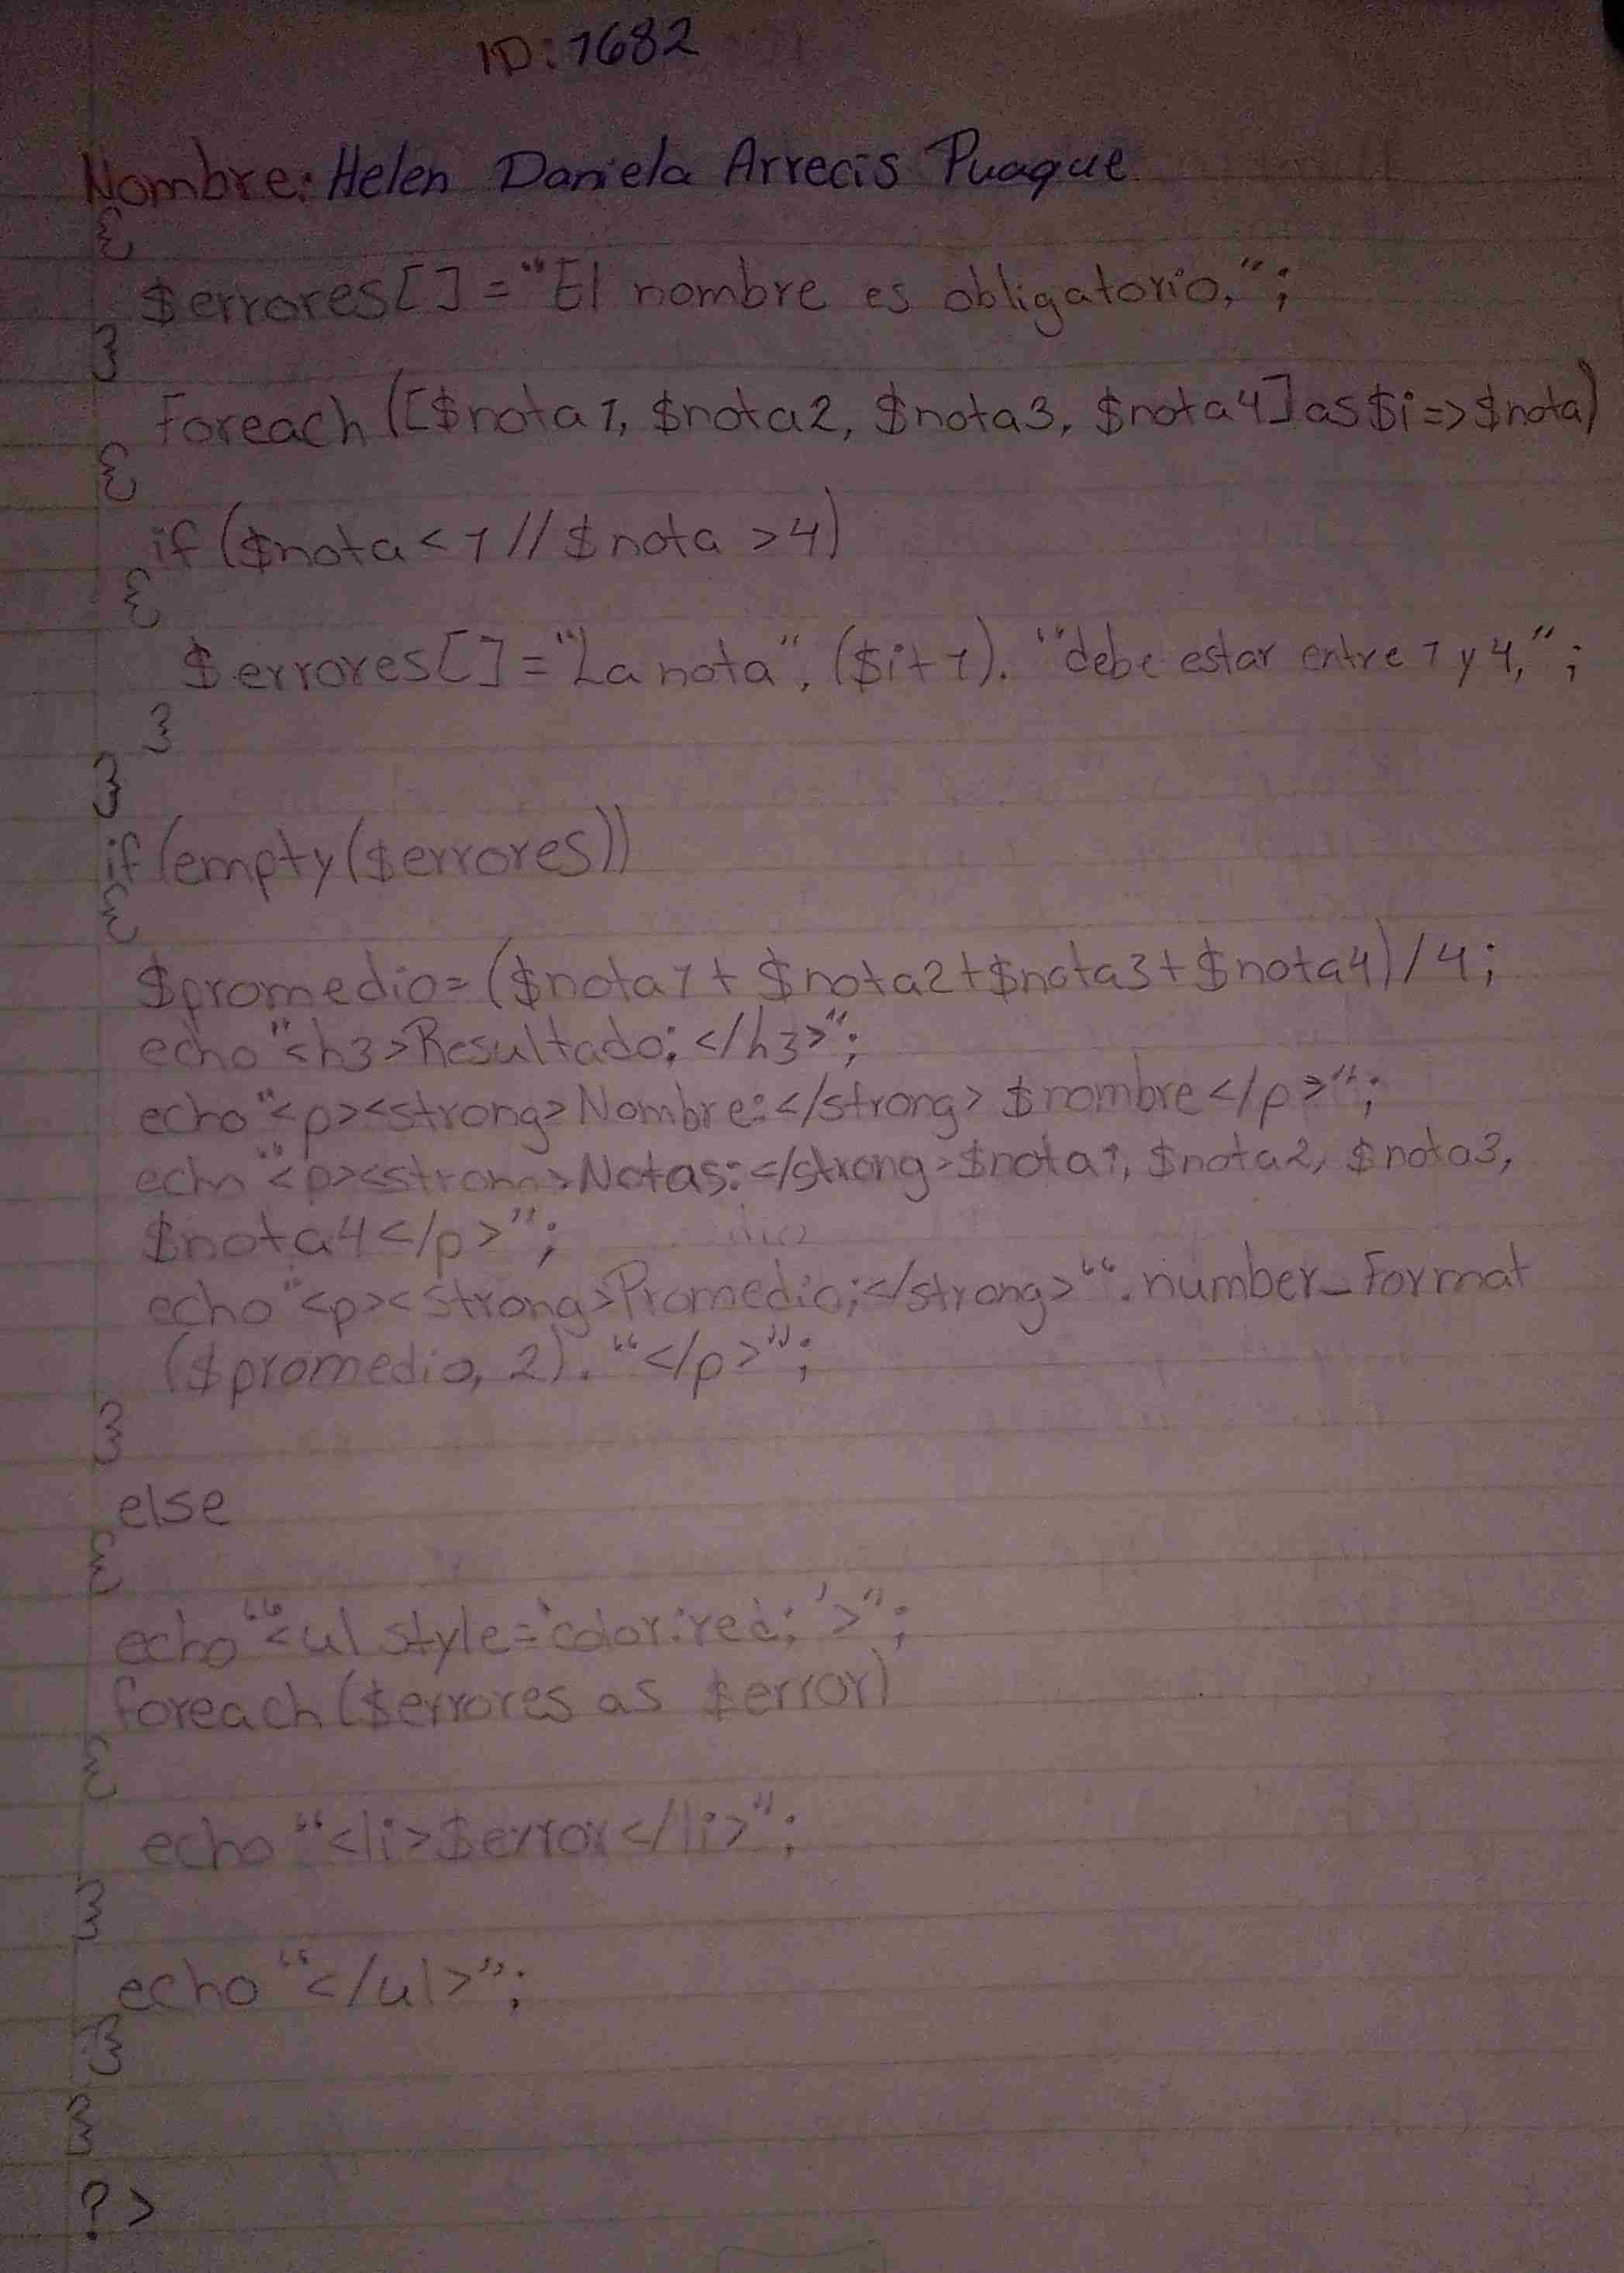 ID: 1682
Nombre: Helen Daniela Arrecis Puaque
{
$errores[] = "El nombre es obligatorio,";
}
Foreach ([$nota1, $nota2, $nota3, $nota4] as $i => $nota)
{
if ($nota < 1 // $nota > 4)
{
$errores[] = "La nota". ($i+1). "debe estar entre 1 y 4,";
}
}
if (empty($errores))
{
$promedio = ($nota1 + $nota2 + $nota3 + $nota4) / 4;
echo "<h3>Resultado: </h3>";
echo "<p><strong>Nombre:</strong> $nombre</p>";
echo "<p><strong>Notas:</strong>$nota1, $nota2, $nota3,
$nota4</p>";
echo "<p><strong>Promedio:</strong>". number_Format
($promedio, 2). "</p>";
}
else
{
echo "<ul style='color:red;'>";
foreach ($errores as $error)
{
echo "<li>$error</li>";
}
echo "</ul>";
}
}
?>